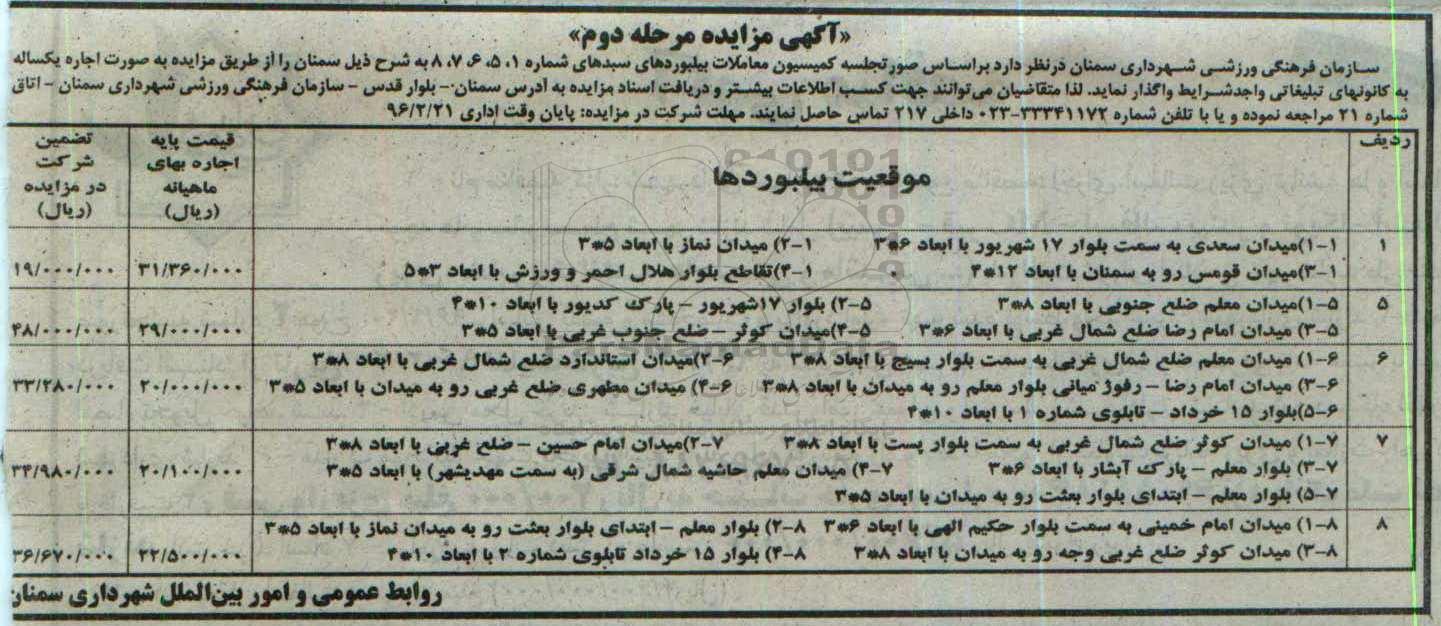 «آگهی مزایده مرحله دوم»
سازمان فرهنگی ورزشی شهرداری سمنان درنظر دارد براساس صورتجلسه کمیسیون معاملات بیلبوردهای سبدهای شماره ۱، ۵، ۶، ۷، ۸ به شرح ذیل سمنان را از طریق مزایده به صورت اجاره یکساله
به کانونهای تبلیغاتی واجدشرایط واگذار نماید. لذا متقاضیان می‌توانند جهت کسب اطلاعات بیشتر و دریافت اسناد مزایده به آدرس سمنان - بلوار قدس - سازمان فرهنگی ورزشی شهرداری سمنان - اتاق
شماره ۲۱ مراجعه نموده و یا با تلفن شماره ۳۳۳۴۱۱۷۲-۰۲۳ داخلی ۲۱۷ تماس حاصل نمایند. مهلت شرکت در مزایده: پایان وقت اداری ۹۶/۲/۲۱
ردیف
موقعیت بیلبوردها
قیمت پایه
اجاره بهای
ماهیانه
(ریال)
تضمین
شرکت
در مزایده
(ریال)
۱
۱-۱)میدان سعدی به سمت بلوار ۱۷ شهریور با ابعاد ۶*۳ ۲-۱) میدان نماز با ابعاد ۵*۳
۳-۱)میدان قومس رو به سمنان با ابعاد ۱۲*۴ ۴-۱)تقاطع بلوار هلال احمر و ورزش با ابعاد ۳*۵
۳۱/۳۶۰/۰۰۰
۱۹/۰۰۰/۰۰۰
۵
۱-۵)میدان معلم ضلع جنوبی با ابعاد ۸*۳ ۲-۵) بلوار ۱۷شهریور - پارک کدیور با ابعاد ۱۰*۴
۳-۵) میدان امام رضا ضلع شمال غربی با ابعاد ۶*۳ ۴-۵)میدان کوثر - ضلع جنوب غربی با ابعاد ۵*۳
۲۹/۰۰۰/۰۰۰
۴۸/۰۰۰/۰۰۰
۶
۱-۶) میدان معلم ضلع شمال غربی به سمت بلوار بسیج با ابعاد ۸*۳ ۲-۶)میدان استاندارد ضلع شمال غربی با ابعاد ۸*۳
۳-۶) میدان امام رضا - رفوژ میانی بلوار معلم رو به میدان با ابعاد ۸*۳ ۴-۶) میدان مطهری ضلع غربی رو به میدان با ابعاد ۵*۳
۵-۶)بلوار ۱۵ خرداد - تابلوی شماره ۱ با ابعاد ۱۰*۴
۲۰/۰۰۰/۰۰۰
۳۳/۲۸۰/۰۰۰
۷
۱-۷) میدان کوثر ضلع شمال غربی به سمت بلوار پست با ابعاد ۸*۳ ۲-۷)میدان امام حسین - ضلع غربی با ابعاد ۸*۳
۳-۷) بلوار معلم - پارک آبشار با ابعاد ۶*۳ ۴-۷) میدان معلم حاشیه شمال شرقی (به سمت مهدیشهر) با ابعاد ۵*۳
۵-۷) بلوار معلم - ابتدای بلوار بعثت رو به میدان با ابعاد ۵*۳
۲۰/۱۰۰/۰۰۰
۳۴/۹۸۰/۰۰۰
۸
۱-۸) میدان امام خمینی به سمت بلوار حکیم الهی با ابعاد ۶*۳ ۲-۸) بلوار معلم - ابتدای بلوار بعثت رو به میدان نماز با ابعاد ۵*۳
۳-۸) میدان کوثر ضلع غربی وجه رو به میدان با ابعاد ۸*۳ ۴-۸) بلوار ۱۵ خرداد تابلوی شماره ۲ با ابعاد ۱۰*۴
۲۲/۵۰۰/۰۰۰
۳۶/۶۷۰/۰۰۰
روابط عمومی و امور بین‌الملل شهرداری سمنان